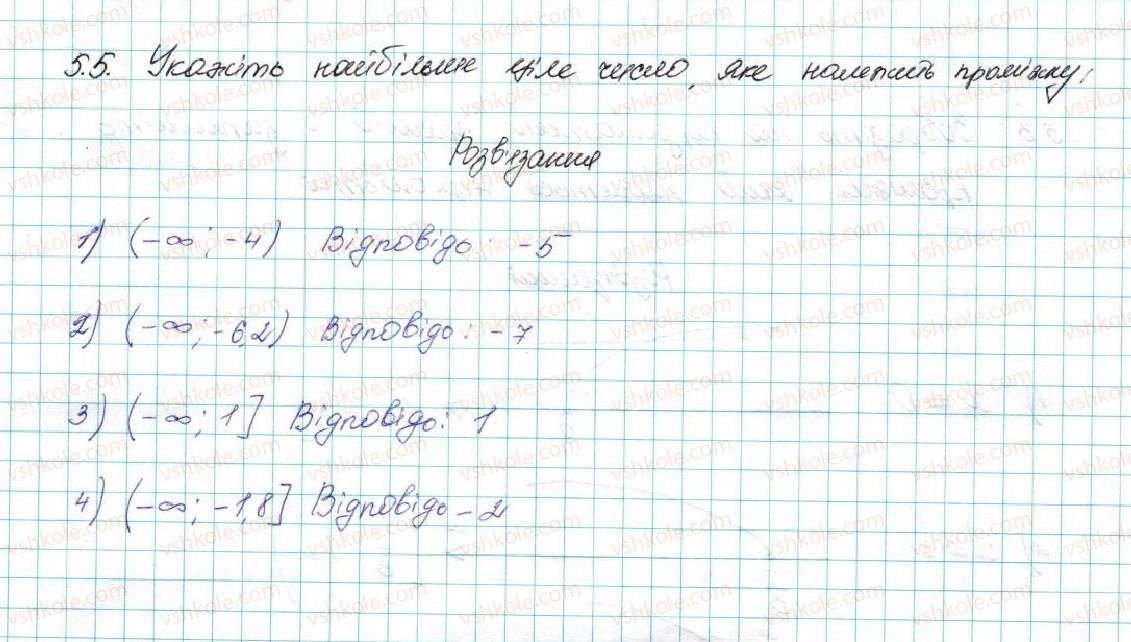 5.5. Укажіть найбільше ціле число, яке належить проміжку:
Розв'язання
1) (-∞; -4) Відповідь: -5
2) (-∞; -6,2) Відповідь: -7
3) (-∞; 1] Відповідь: 1
4) (-∞; -1,8] Відповідь -2